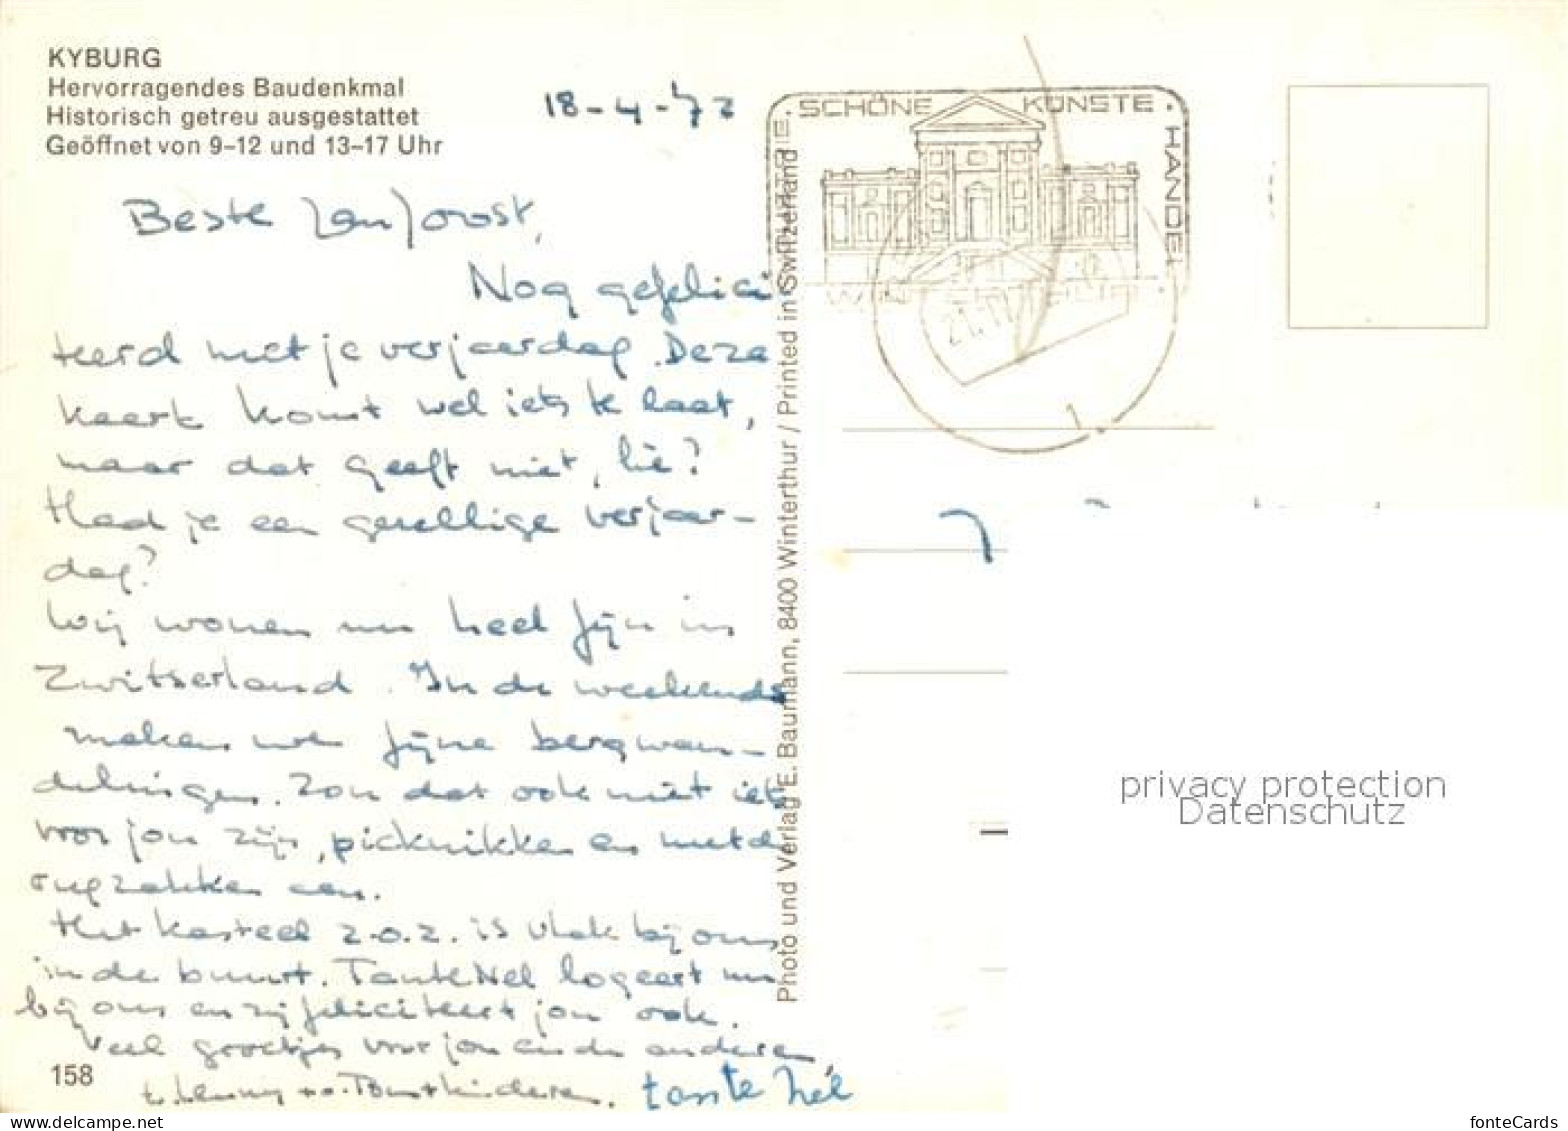 KYBURG
Hervorragendes Baudenkmal
Historisch getreu ausgestattet
Geöffnet von 9–12 und 13–17 Uhr
18-4-'72
Beste Jan Joost,
Nog gefelici
teerd met je verjaardag. Deze
keer komt wel iets te laat,
maar dat geeft niet, hè?
Had je een gezellige verjaar-
dag?
Wij wonen nu heel fijn in
Zwitserland. In de weekends
maken we fijne bergwan-
delingen. Zou dat ook niet iets
voor jou zijn, picknikken en met de
rugzakken aan.
Het kasteel z.o.z. is vlak bij ons
in de buurt. Tante Nel logeert nu
bij ons en zij feliciteert jou ook.
Veel groetjes voor jou en de anderen,
tante Nel
158
Photo und Verlag E. Baumann, 8400 Winterthur / Printed in Switzerland
SCHÖNE KÜNSTE · HANDEL
1
privacy protection
Datenschutz
delcampe.net
fonteCards